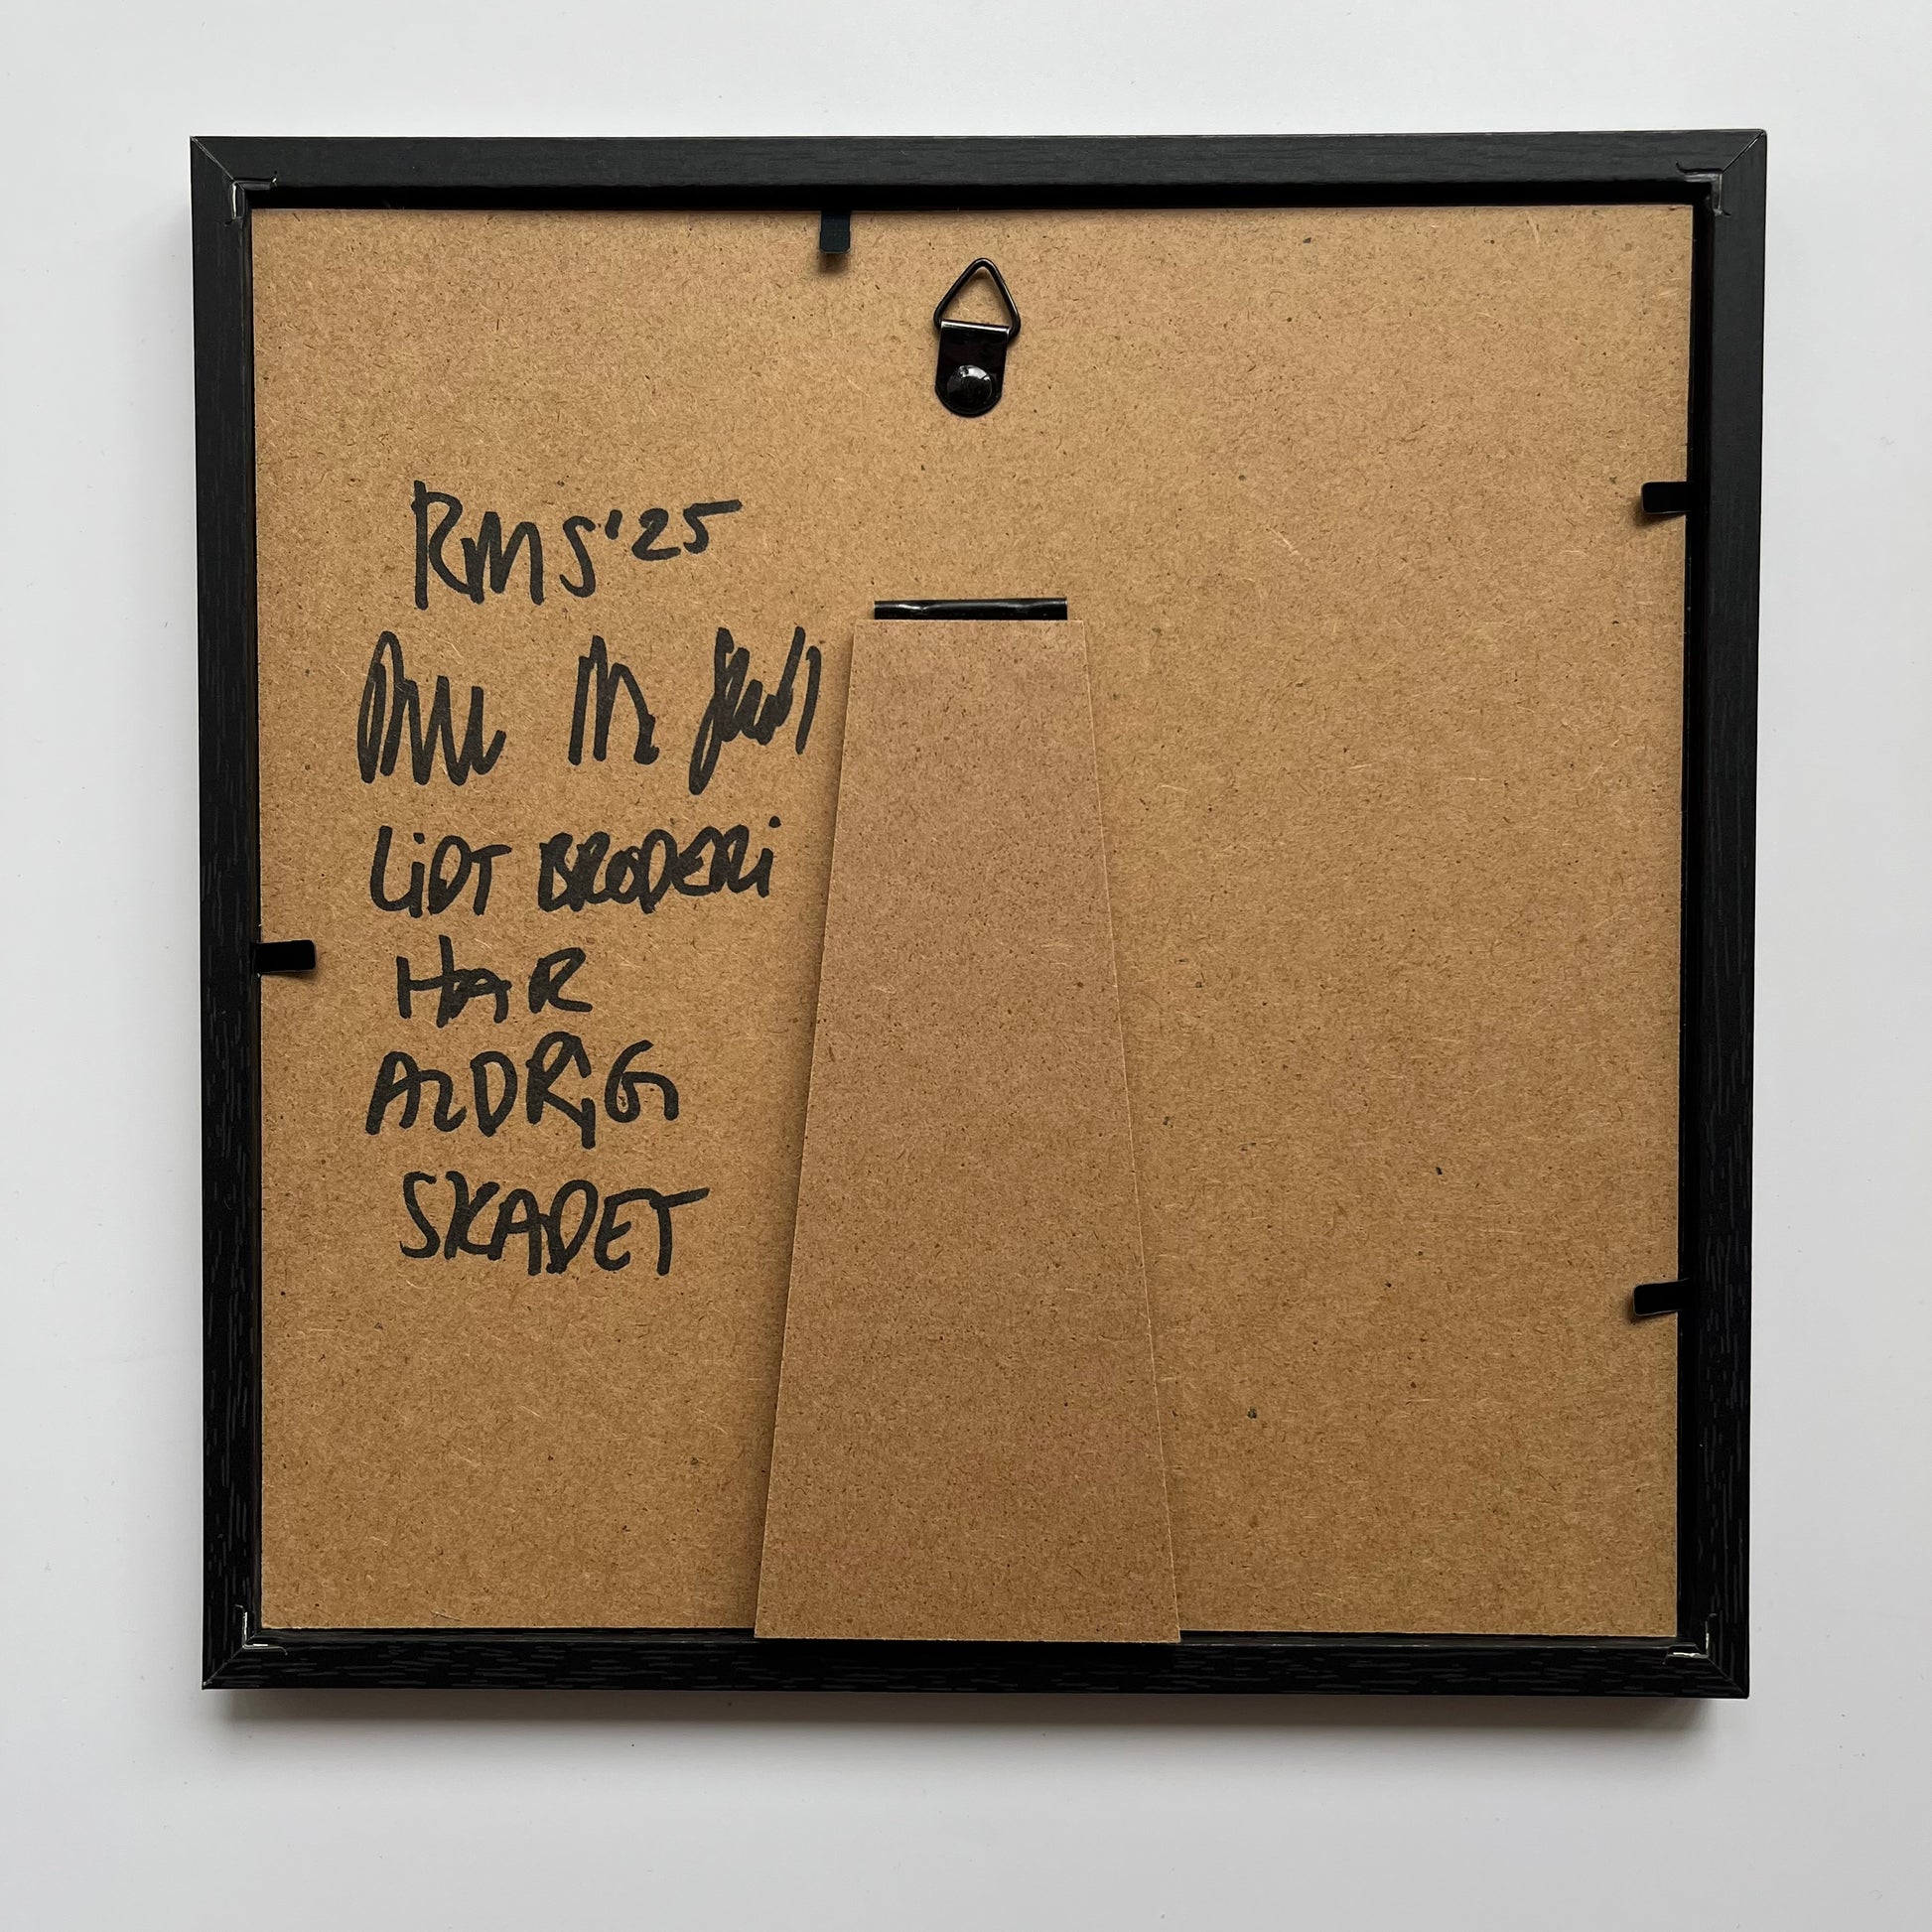 RMS '25
LiDT BRODERi
HAR
ALDRiG
SKADET